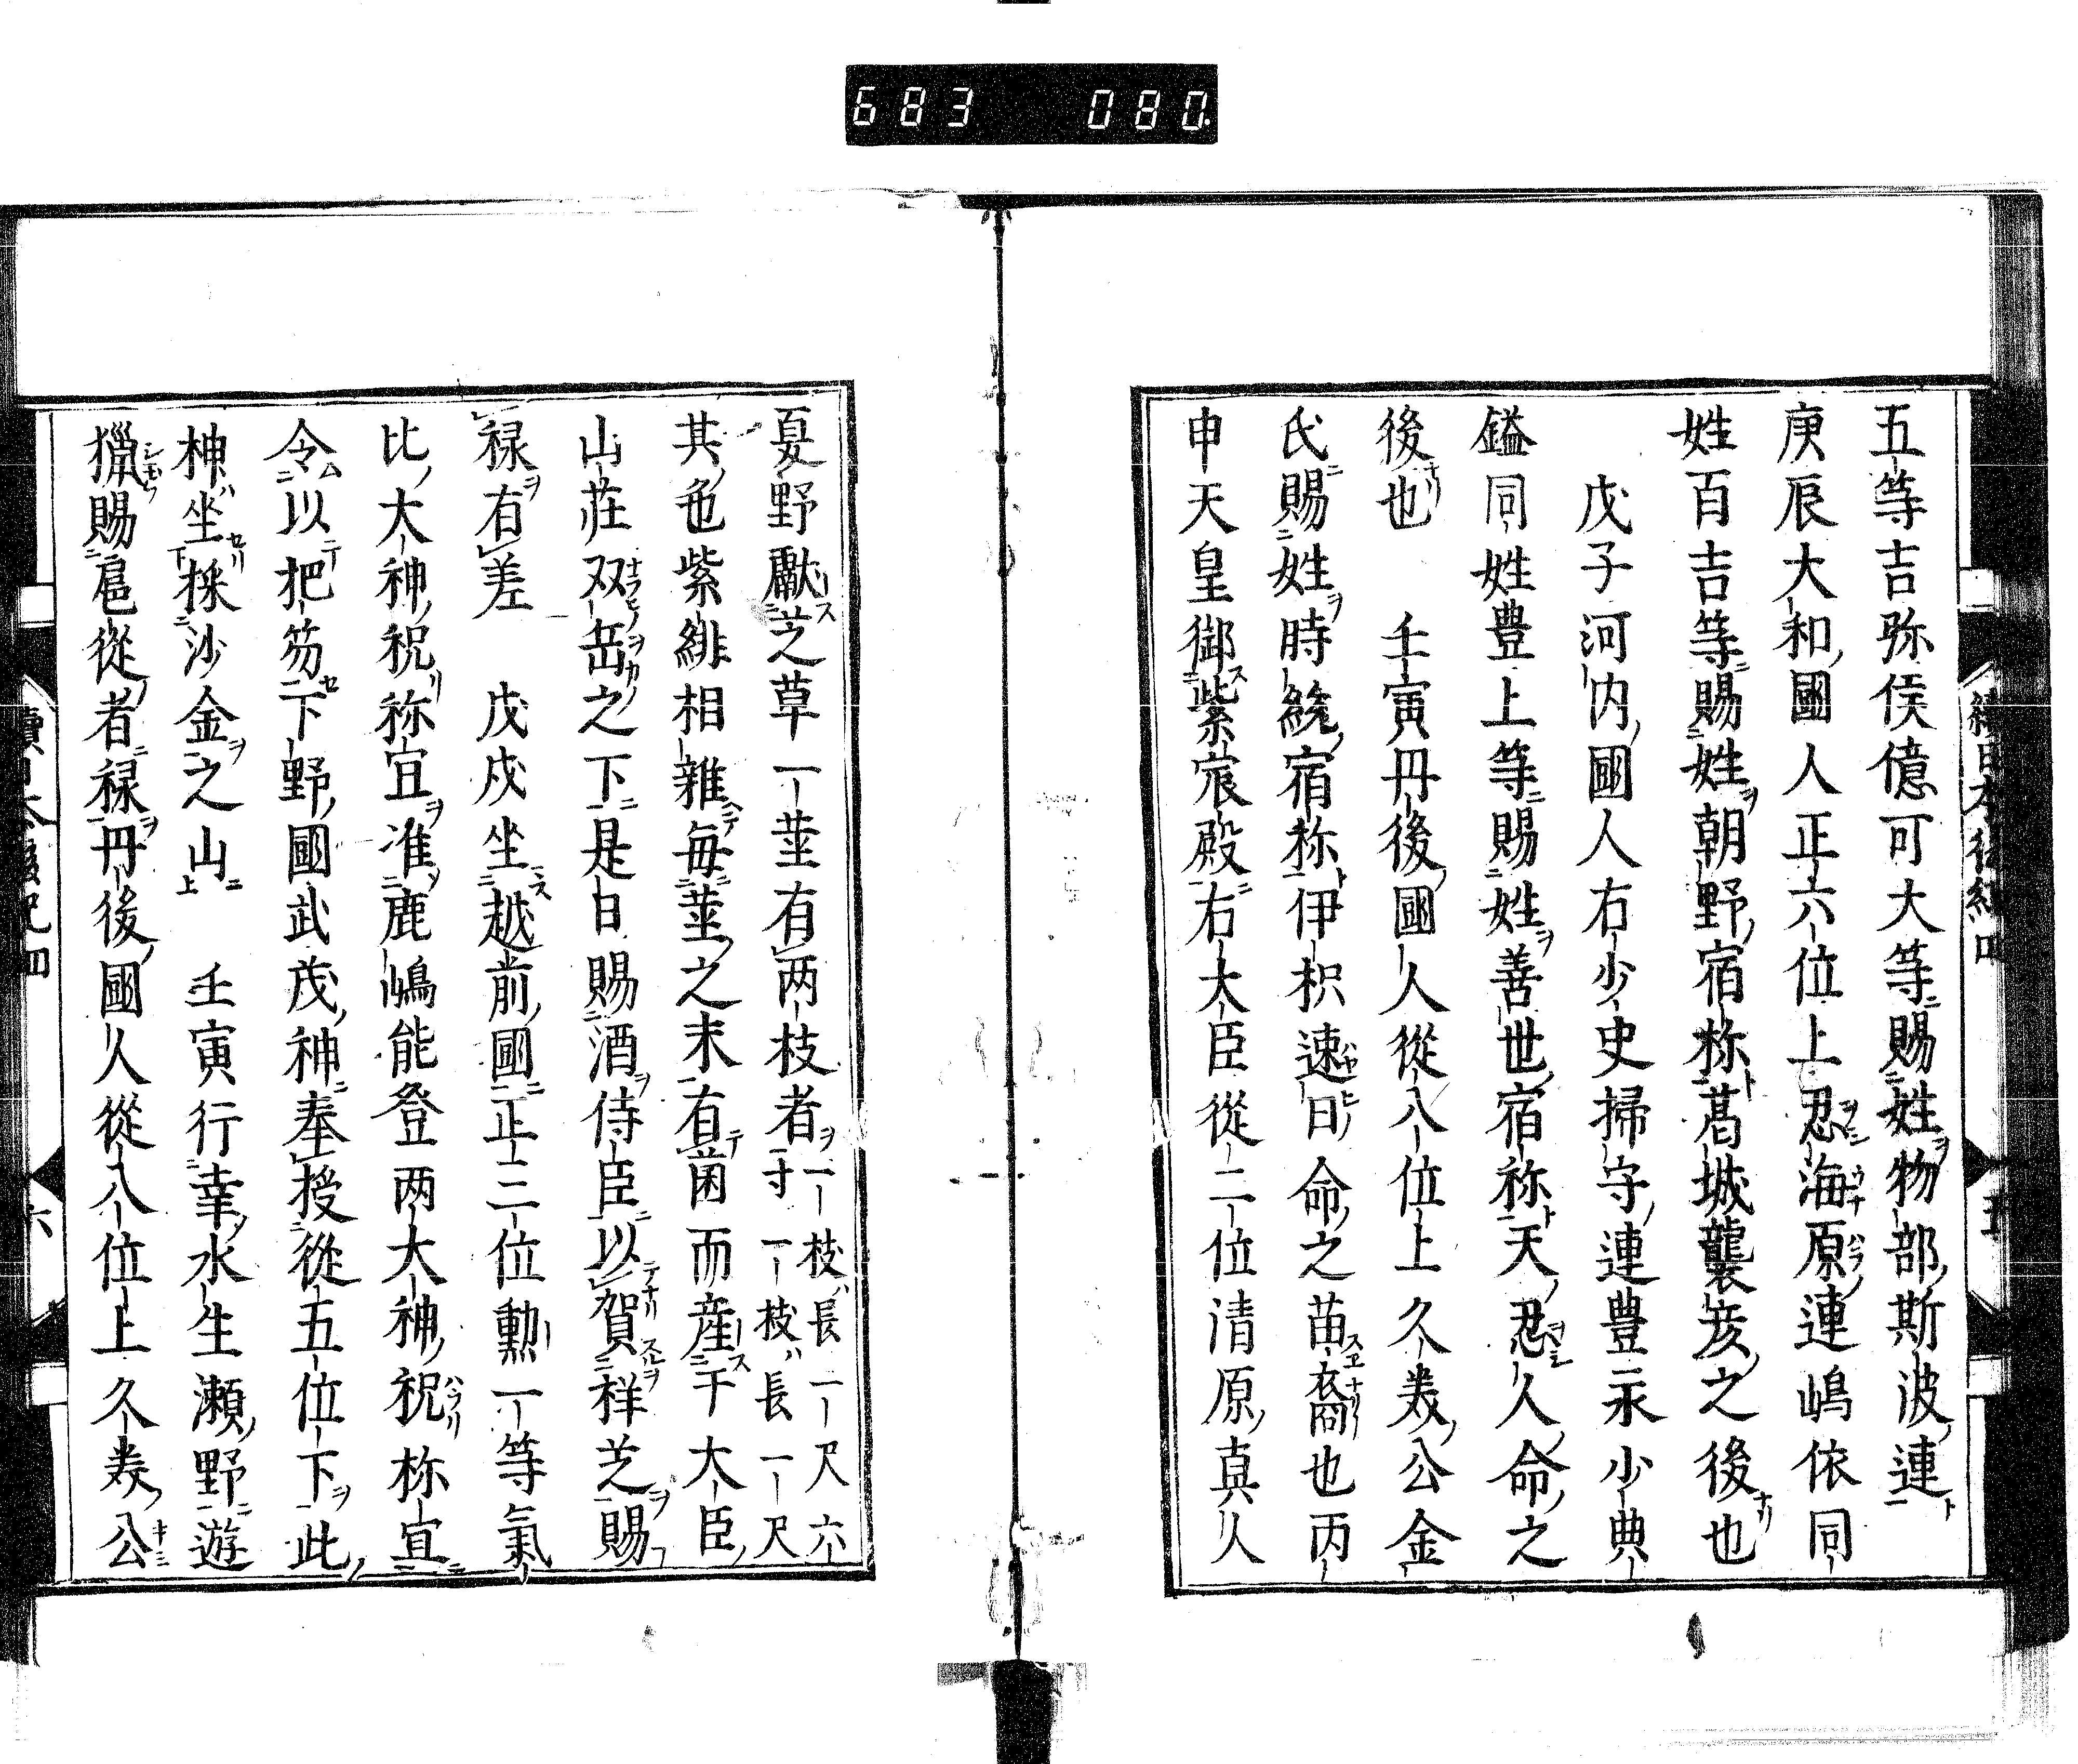 683 080
續日本後紀四
五
五等吉弥侯億可大等賜姓物部斯波連
庚辰大和國人正六位上忍海原連嶋依同
姓百吉等賜姓朝野宿祢葛城襲彦之後也
戊子河内國人右少史掃守連豊永少典
鎰同姓豊上等賜姓善世宿祢天忍人命之
後也 壬寅丹後國人從八位上久美公金
氏賜姓時統宿祢伊枳速日命之苗裔也丙
申天皇御紫宸殿右大臣從二位清原真人
夏野獻芝草一莖有两枝者一枝長一尺六寸一枝長一尺
其色紫緋相雜毎莖之末有菌而産于大臣
山莊双岳之下是日賜酒侍臣以賀祥芝賜
禄有差 戊戌坐越前國正三位勲一等氣
比大神祝祢宜准鹿嶋能登两大神祝祢宜
令以把笏下野國武茂神奉授從五位下此
神坐採沙金之山 壬寅行幸水生瀬野遊
獵賜扈從者禄丹後國人從八位上久美公
續日本後紀四
六